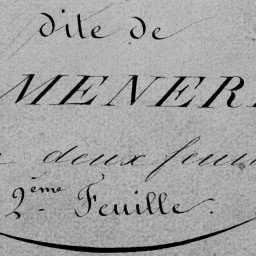 dite de
MENER
deux feui
2ème Feuille.